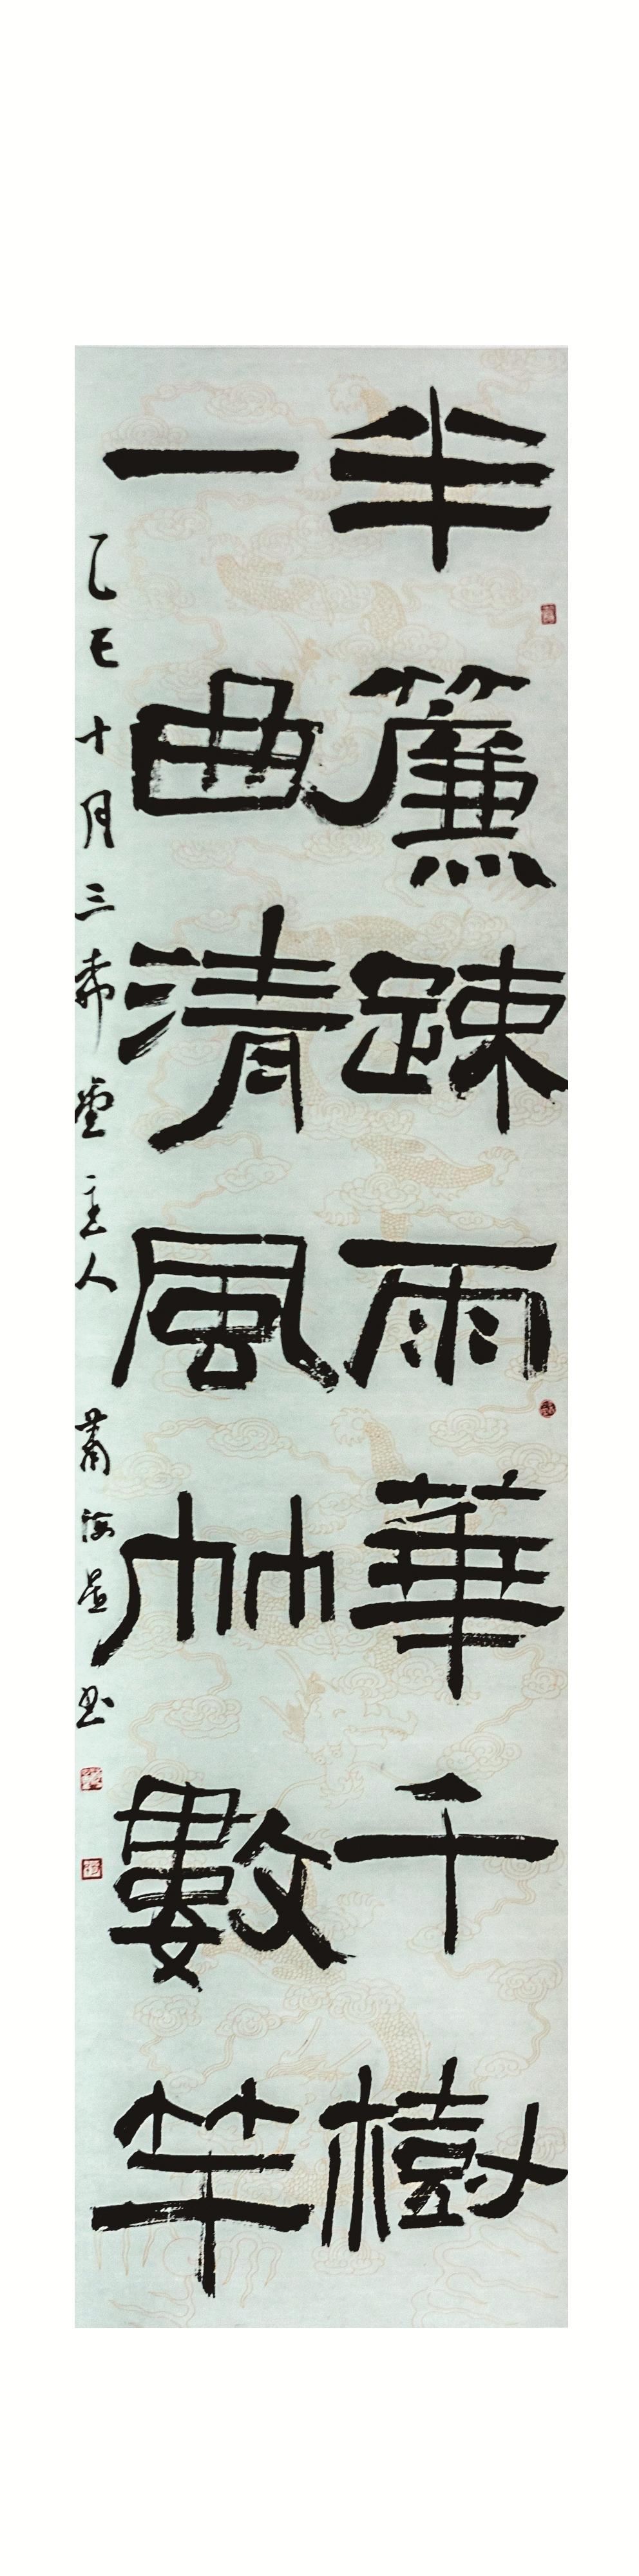 半簾疎雨華千樹
一曲清風竹數竿
乙巳十月三希堂主人 蕭海書